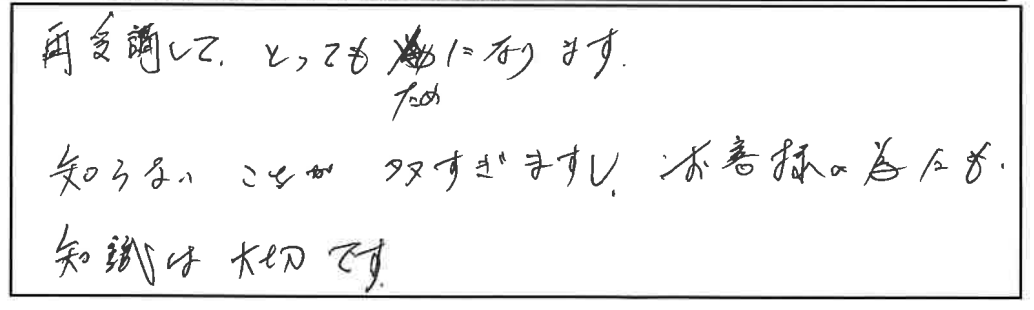 再受講して、とっても ためになります。
知らない ことが 多すぎますし、お客様の為にも、
知識は 大切です。